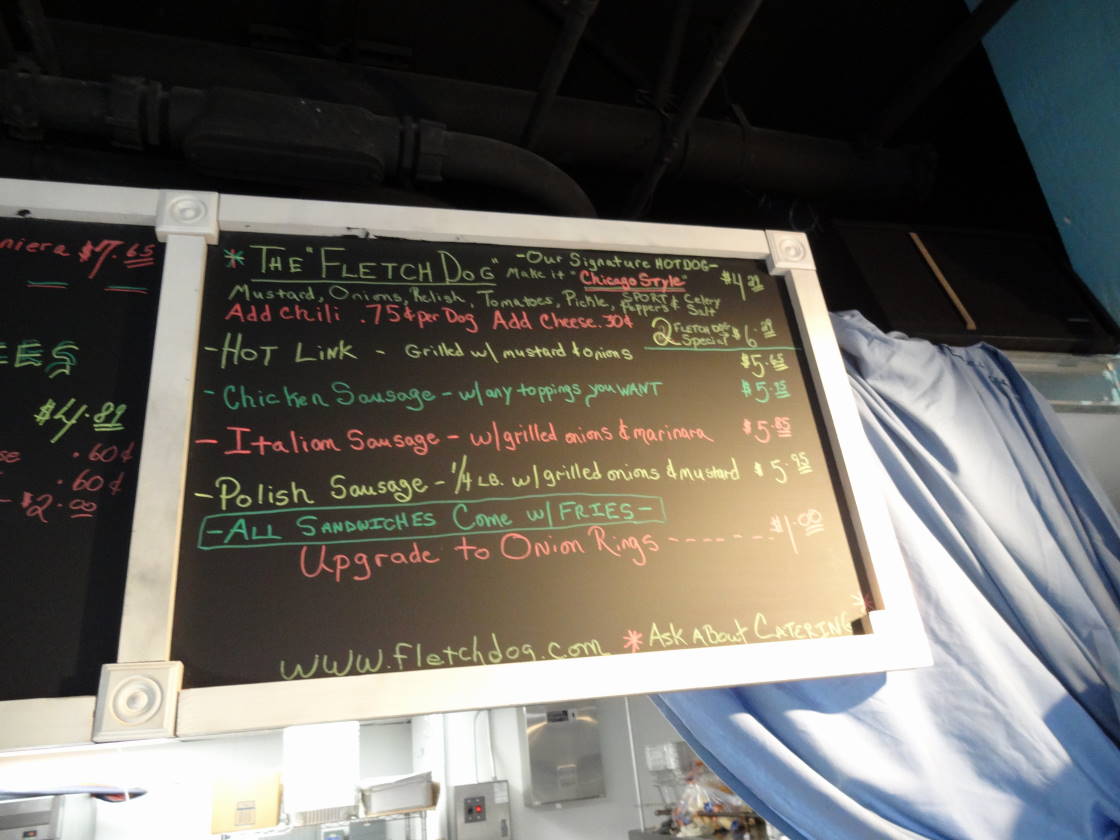 $7.65
$4.89
.60¢
.60¢
- $2.00
* THE "FLETCH DOG" -Our Signature HOTDOG-
Make it "Chicago Style"
Mustard, Onions, Relish, Tomatoes, Pickle, SPORT Peppers & Celery Salt
Add Chili .75¢ per Dog Add Cheese .30¢
2 FLETCH DOG Special
-HOT LINK - Grilled w/ mustard & onions $5.65
- Chicken Sausage - w/any toppings you WANT
- Italian Sausage - w/grilled onions & marinara $5.85
-Polish Sausage - 1/4 LB. w/grilled onions & mustard $5.95
-ALL SANDWICHES Come w/ FRIES-
Upgrade to Onion Rings ------- $1.00
www.fletchdog.com * ASK ABOUT CATERING *